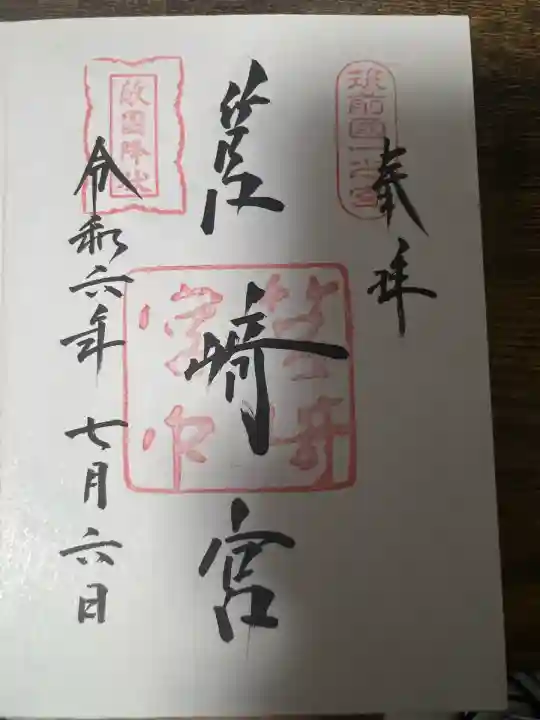 筑前國一之宮
奉拝
筥崎宮
筥崎宮印
敵國降伏
令和六年七月六日